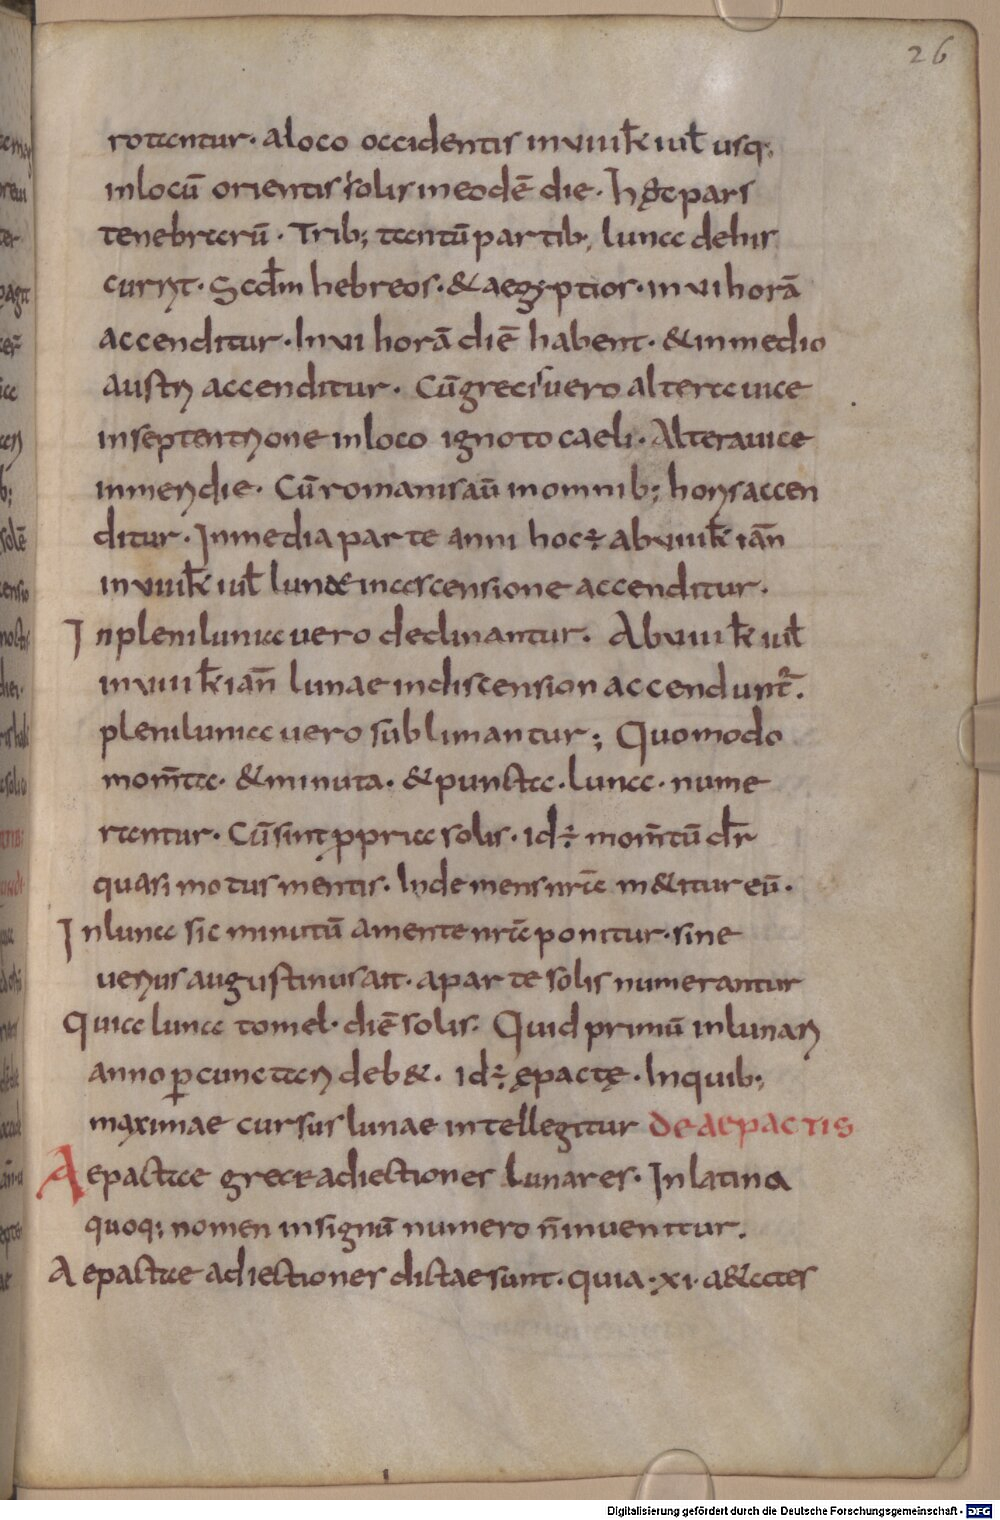 26
rotantur. a loco occidentis in viiii k̄ iul̄ usq;
in locū orientis solis in eodē die. Hęc pars
tenebrarū. Trib; tantū partib; lunae de his
curr̄t. Scdm̄ hebreos. & aegyptios. in vi horā
accenditur. In vi horā diē habent. & in medio
austri accenditur. Cū grecis uero altera uice
in septentrione in loco ignoto caeli. Altera uice
in meridie. Cū romanis aū in omnib; horis accen
ditur. In media parte anni hoc ÷ ab viiii k̄ iān
in viiii k̄ iul̄ lunae in ascensione accenditur.
In plenilunia uero declinantur. Ab viiii k̄ iul̄
in viiii k̄ iān lunae in discension accendunt̄.
plenilunia uero sublimantur; Quomodo
mom̄ta. & minuta. & puncta. lunae. nume
rantur. Cū sint ꝓpria solis. id ÷ mom̄tū dr̄
quasi motus mentis. Inde mens nr̄a m&itur eū.
In luna sic minutū a mente nr̄a ponitur. sine
uerius augustinus ait. a parte solis numerantur
Quia luna tomel. diē solis. Quid primū in lunari
anno ꝑcunctari deb&. id ÷ ępactę. In quib;
maximae cursus lunae intellegitur de aepactis
Aepactae grece adiectiones lunares. In latina
quoq; nomen insignū numero n̄ inuenitur.
Aepactae adiectiones dictae sunt. quia. xi. a&ates
Digitalisierung gefördert durch die Deutsche Forschungsgemeinschaft - DFG